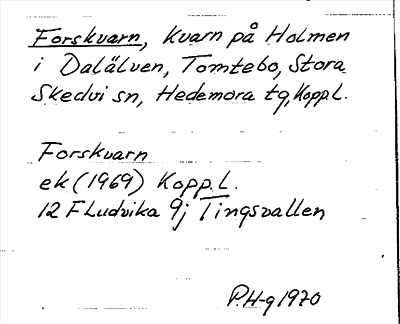 Forskvarn, Kvarn på Holmen
i Dalälven, Tomtebo, Stora
Skedvi sn, Hedemora tg, Koppl.
Forskvarn
ek (1969) Koppl.
12 F Ludvika 9j Tingsvallen
P.H-g 1970